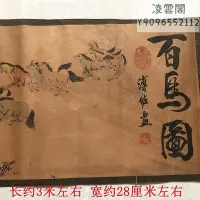 凌雲閣
Y9096552112
百馬圖
溥佐畫
长约3米左右 宽约28厘米左右